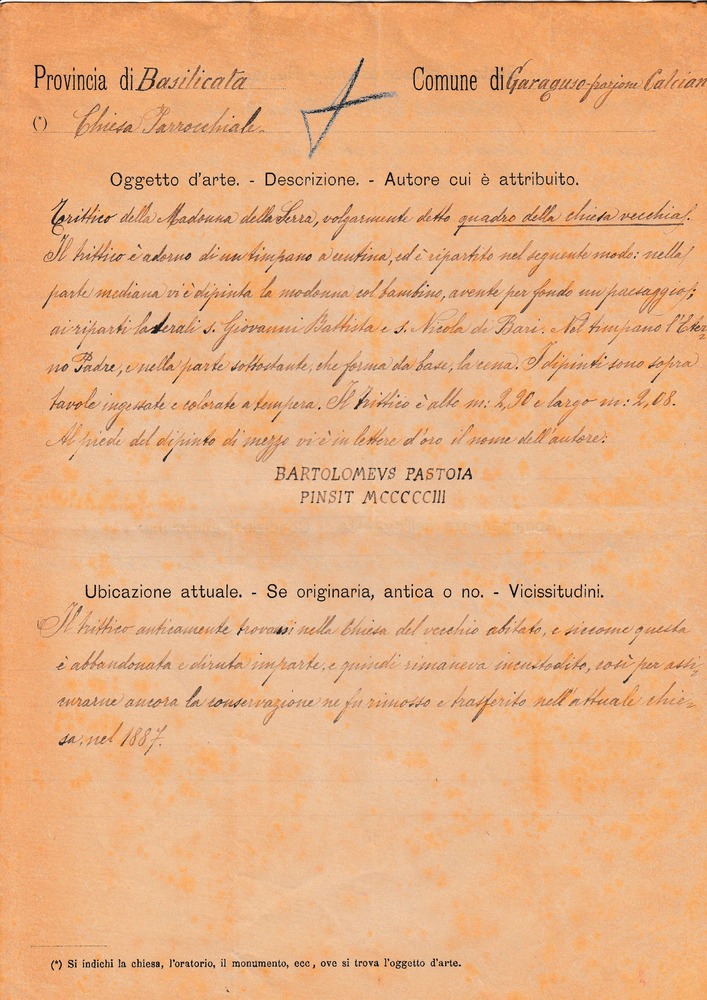 Provincia di Basilicata Comune di Garaguso-frazione Calcian
(*) Chiesa Parrocchiale.
Oggetto d'arte. - Descrizione. - Autore cui è attribuito.
Trittico della Madonna della Serra, volgarmente detto quadro della chiesa vecchia.
Il trittico è adorno di un timpano a centina, ed è ripartito nel seguente modo: nella
parte mediana vi è dipinta la madonna col bambino, avente per fondo un paesaggio;
ai riparti laterali s. Giovanni Battista e s. Nicola di Bari. Nel timpano l'Eter-
no Padre, e nella parte sottostante, che forma da base, la cena. I dipinti sono sopra
tavole ingessate e colorate a tempera. Il trittico è alto m: 2,90 e largo m: 2,08.
Al piede del dipinto di mezzo vi è in lettere d'oro il nome dell'autore:
BARTOLOMEVS PASTOIA
PINSIT MCCCCCIII
Ubicazione attuale. - Se originaria, antica o no. - Vicissitudini.
Il trittico anticamente trovavasi nella Chiesa del vecchio abitato, e siccome questa
è abbandonata e diruta imparte, e quindi rimaneva incustodito, così per assi-
curarne ancora la conservazione ne fu rimosso e trasferito nell'attuale chie-
sa, nel 1887.
(*) Si indichi la chiesa, l'oratorio, il monumento, ecc, ove si trova l'oggetto d'arte.